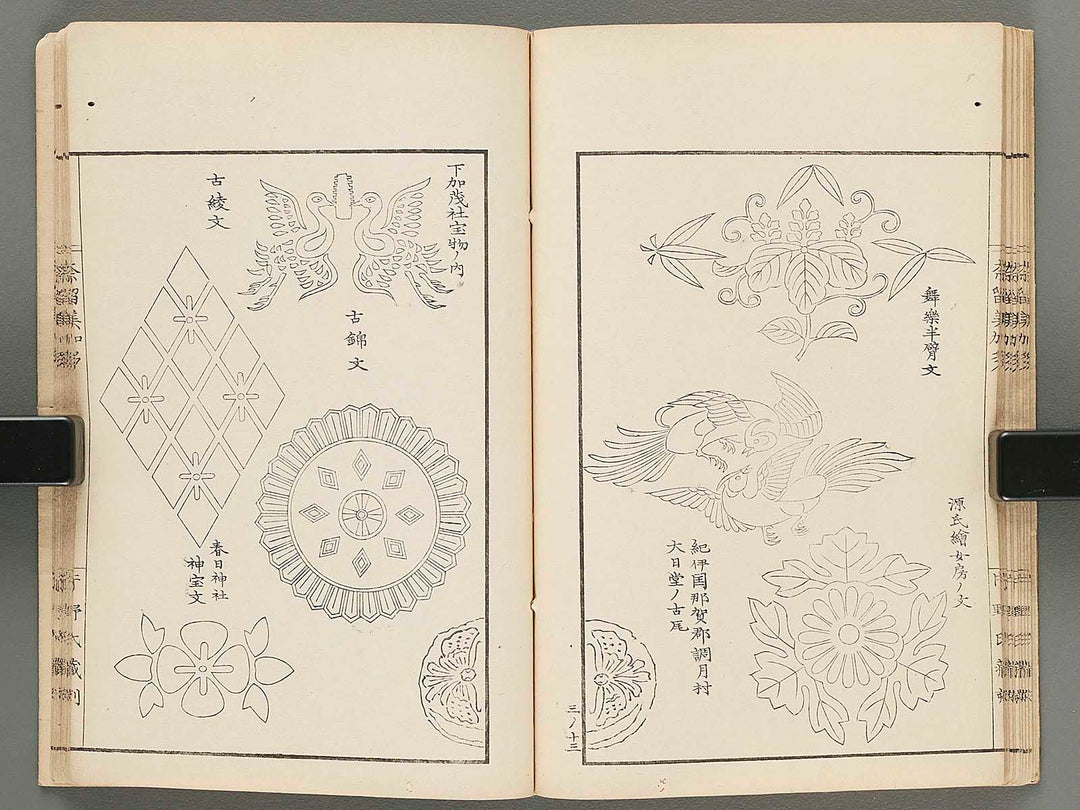 舞樂半臂文
源氏繪女房ノ文
紀伊国那賀郡調月村
大日堂ノ古瓦
三ノ十三
下加茂社宝物ノ内
古錦文
古綾文
春日神社
神宝文